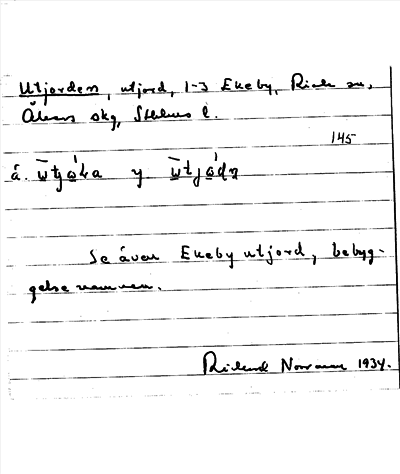 Utjorden, utjord, 1-3 Ekeby, Riala sn,
Åkers skg, Sthlms l.
145
å. y
Se även Ekeby utjord, bebyg-
gelsenamnen.
Rickard Norrman 1934.